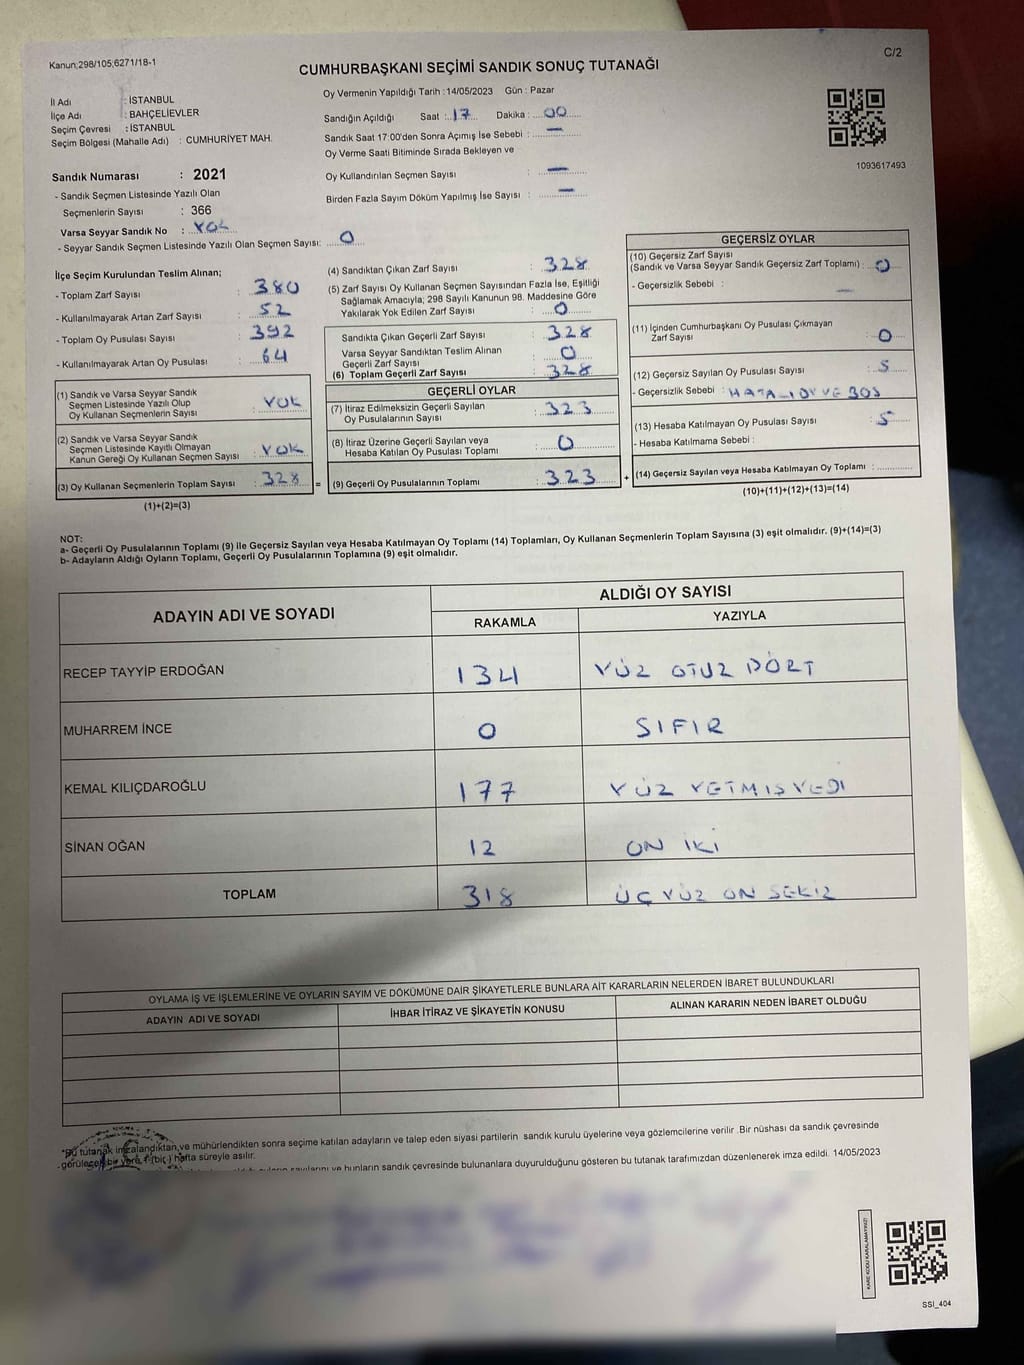 Kanun;298/105;6271/18-1
C/2
CUMHURBAŞKANI SEÇİMİ SANDIK SONUÇ TUTANAĞI
İl Adı : İSTANBUL
İlçe Adı : BAHÇELİEVLER
Seçim Çevresi : İSTANBUL
Seçim Bölgesi (Mahalle Adı) : CUMHURİYET MAH.
Oy Vermenin Yapıldığı Tarih : 14/05/2023 Gün : Pazar
Sandığın Açıldığı Saat : 17 Dakika : 00
Sandık Saat 17:00'den Sonra Açımış İse Sebebi : —
Oy Verme Saati Bitiminde Sırada Bekleyen ve
Oy Kullandırılan Seçmen Sayısı : —
Birden Fazla Sayım Döküm Yapılmış İse Sayısı : —
1093617493
Sandık Numarası : 2021
- Sandık Seçmen Listesinde Yazılı Olan
Seçmenlerin Sayısı : 366
Varsa Seyyar Sandık No : YOK
- Seyyar Sandık Seçmen Listesinde Yazılı Olan Seçmen Sayısı: 0
İlçe Seçim Kurulundan Teslim Alınan;
- Toplam Zarf Sayısı : 380
- Kullanılmayarak Artan Zarf Sayısı : 52
- Toplam Oy Pusulası Sayısı : 392
- Kullanılmayarak Artan Oy Pusulası : 64
(1) Sandık ve Varsa Seyyar Sandık
Seçmen Listesinde Yazılı Olup
Oy Kullanan Seçmenlerin Sayısı : YOK
(2) Sandık ve Varsa Seyyar Sandık
Seçmen Listesinde Kayıtlı Olmayan
Kanun Gereği Oy Kullanan Seçmen Sayısı : YOK
(3) Oy Kullanan Seçmenlerin Toplam Sayısı : 328 =
(1)+(2)=(3)
(4) Sandıktan Çıkan Zarf Sayısı : 328
(5) Zarf Sayısı Oy Kullanan Seçmen Sayısından Fazla İse, Eşitliği
Sağlamak Amacıyla; 298 Sayılı Kanunun 98. Maddesine Göre
Yakılarak Yok Edilen Zarf Sayısı : 0
Sandıkta Çıkan Geçerli Zarf Sayısı : 328
Varsa Seyyar Sandıktan Teslim Alınan
Geçerli Zarf Sayısı : 0
(6) Toplam Geçerli Zarf Sayısı : 328
GEÇERLİ OYLAR
(7) İtiraz Edilmeksizin Geçerli Sayılan
Oy Pusulasının Sayısı : 323
(8) İtiraz Üzerine Geçerli Sayılan veya
Hesaba Katılan Oy Pusulası Toplamı : 0
(9) Geçerli Oy Pusulalarının Toplamı : 323 +
GEÇERSİZ OYLAR
(10) Geçersiz Zarf Sayısı
(Sandık ve Varsa Seyyar Sandık Geçersiz Zarf Toplamı) : 0
- Geçersizlik Sebebi : —
(11) İçinden Cumhurbaşkanı Oy Pusulası Çıkmayan
Zarf Sayısı : 0
(12) Geçersiz Sayılan Oy Pusulası Sayısı : 5
- Geçersizlik Sebebi : HATALI OY VE BOŞ
(13) Hesaba Katılmayan Oy Pusulası Sayısı : 5
- Hesaba Katılmama Sebebi :
(14) Geçersiz Sayılan veya Hesaba Katılmayan Oy Toplamı :
(10)+(11)+(12)+(13)=(14)
NOT:
a- Geçerli Oy Pusulalarının Toplamı (9) ile Geçersiz Sayılan veya Hesaba Katılmayan Oy Toplamı (14) Toplamları, Oy Kullanan Seçmenlerin Toplam Sayısına (3) eşit olmalıdır. (9)+(14)=(3)
b- Adayların Aldığı Oyların Toplamı, Geçerli Oy Pusulalarının Toplamına (9) eşit olmalıdır.
ADAYIN ADI VE SOYADI
ALDIĞI OY SAYISI
RAKAMLA YAZIYLA
RECEP TAYYİP ERDOĞAN 134 YÜZ OTUZ DÖRT
MUHARREM İNCE 0 SIFIR
KEMAL KILIÇDAROĞLU 177 YÜZ YETMIŞ YEDI
SİNAN OĞAN 12 ON İKİ
TOPLAM 318 ÜÇ YÜZ ON SEKİZ
OYLAMA İŞ VE İŞLEMLERİNE VE OYLARIN SAYIM VE DÖKÜMÜNE DAİR ŞİKAYETLERLE BUNLARA AİT KARARLARIN NELERDEN İBARET BULUNDUKLARI
ADAYIN ADI VE SOYADI İHBAR İTİRAZ VE ŞİKAYETİN KONUSU ALINAN KARARIN NEDEN İBARET OLDUĞU
*Bu tutanak imzalandıktan ve mühürlendikten sonra seçime katılan adayların ve talep eden siyasi partilerin sandık kurulu üyelerine veya gözlemcilerine verilir .Bir nüshası da sandık çevresinde
görülecek bir yere 1 (bir) hafta süreyle asılır.
oyların sayılarını ve bunların sandık çevresinde bulunanlara duyurulduğunu gösteren bu tutanak tarafımızdan düzenlenerek imza edildi. 14/05/2023
KARE KODU KARALAMAYINIZ!
SSI_404